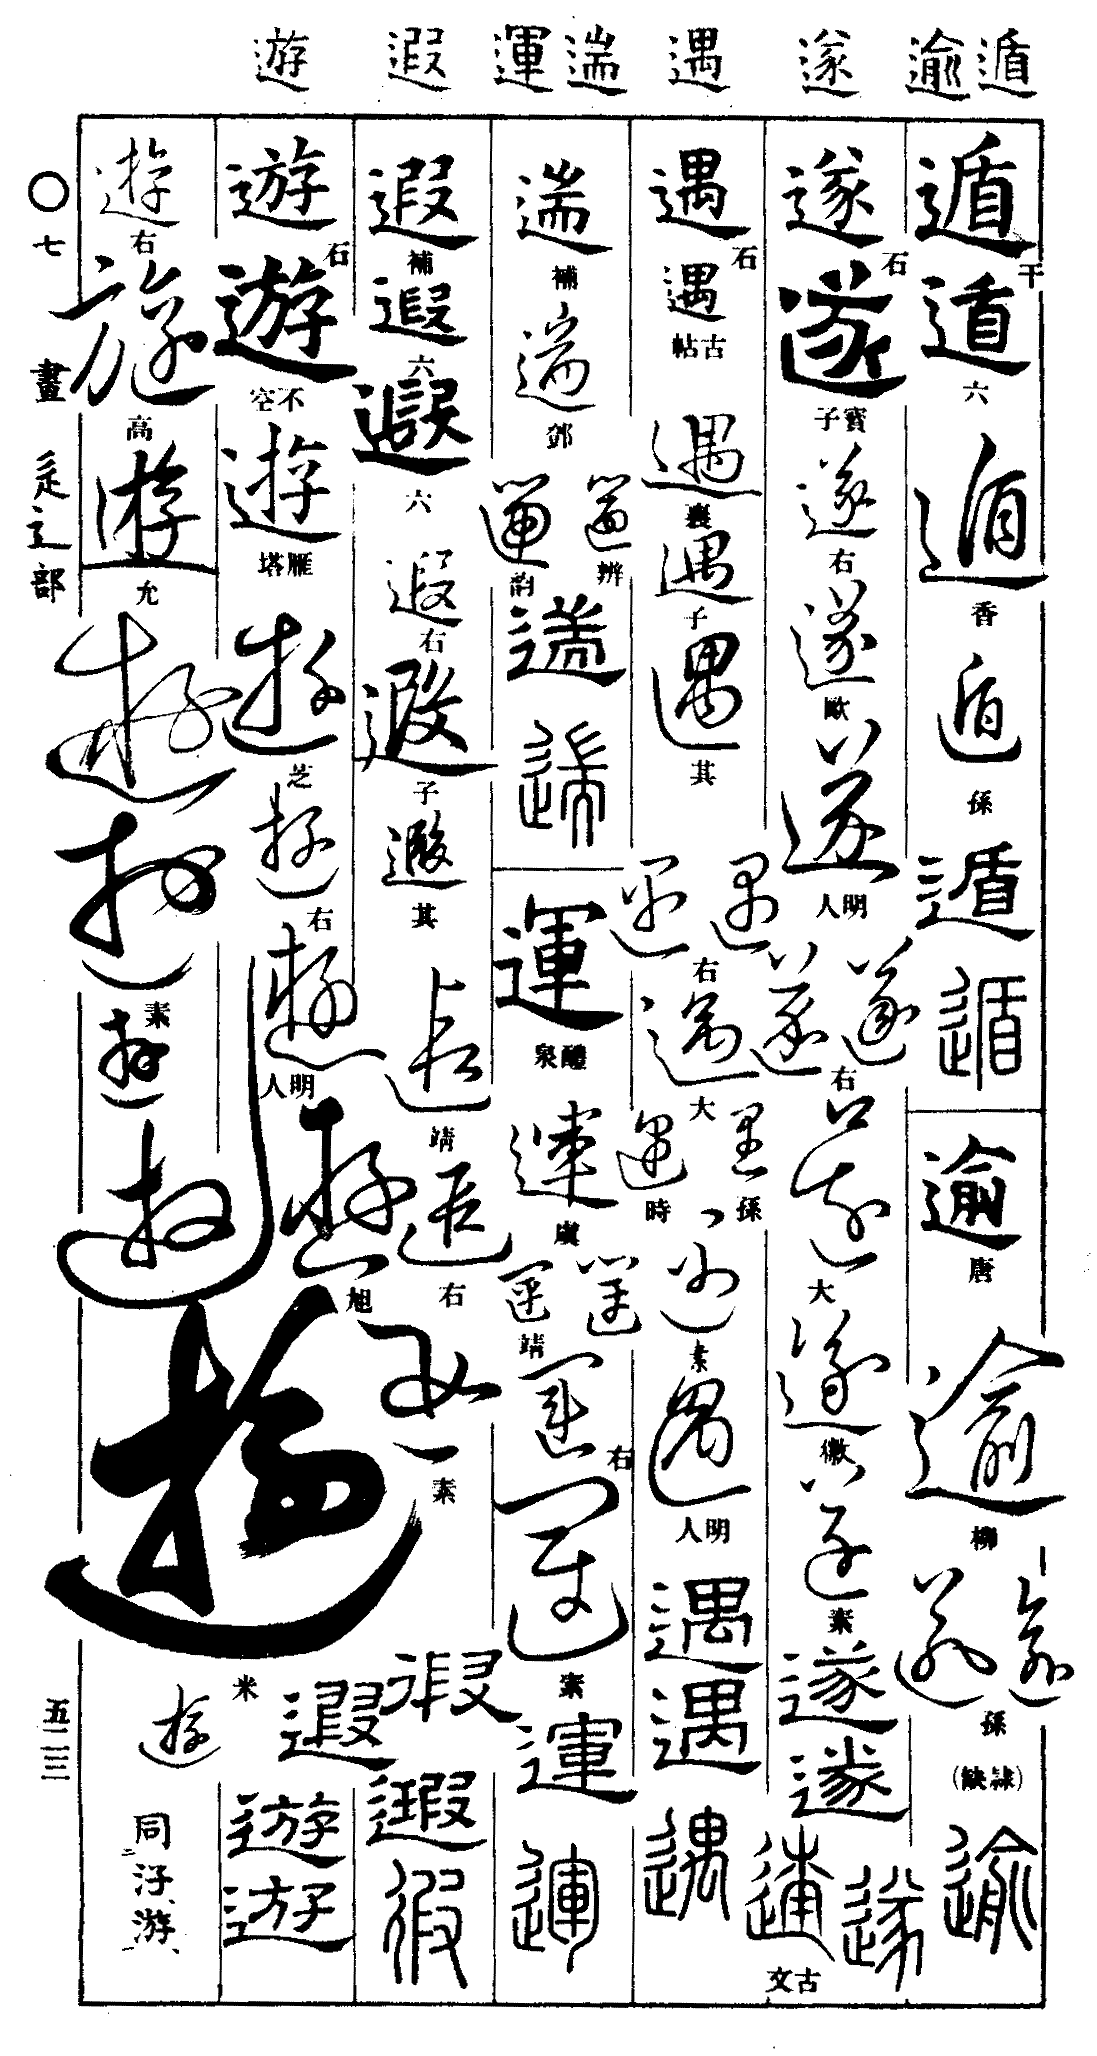 遁 逾 遂 遇 遄 運 遐 遊
遁 干
遁 六
遁 香
遁 孫
遁
遁
逾 唐
逾 柳
逾 逾 孫
(隷缺)
逾
遂 石
遂 寶子
遂 右
遂 歐
遂 明人
遂 遂 右
遂 大
遂 徽
遂 素
遂
遂
遂 遂 古文
遇 石
遇 古帖
遇 襄
遇 子
遇 其
遇 遇 右
遇 大
遇 孫
遇 時
遇 素
遇 明人
遇
遇
遇
遄 補
遄 鄧
遄 辨
遄 韵
遄
遄
運 醴泉
運 虞
運 運 靖
運 右
運 素
運
運
遐 補
遐 六
遐 六
遐 右
遐 子
遐 其
遐 靖
遐 右
遐 素
遐
遐
遐
遊 石
遊 不空
遊 雁塔
遊 芝
遊 右
遊 明人
遊 旭
遊 米
遊
遊
遊 右
遊 高
遊 允
遊
遊 素
遊
遊
遊
同汓、游、
〇七畫
辵辶部
五二三